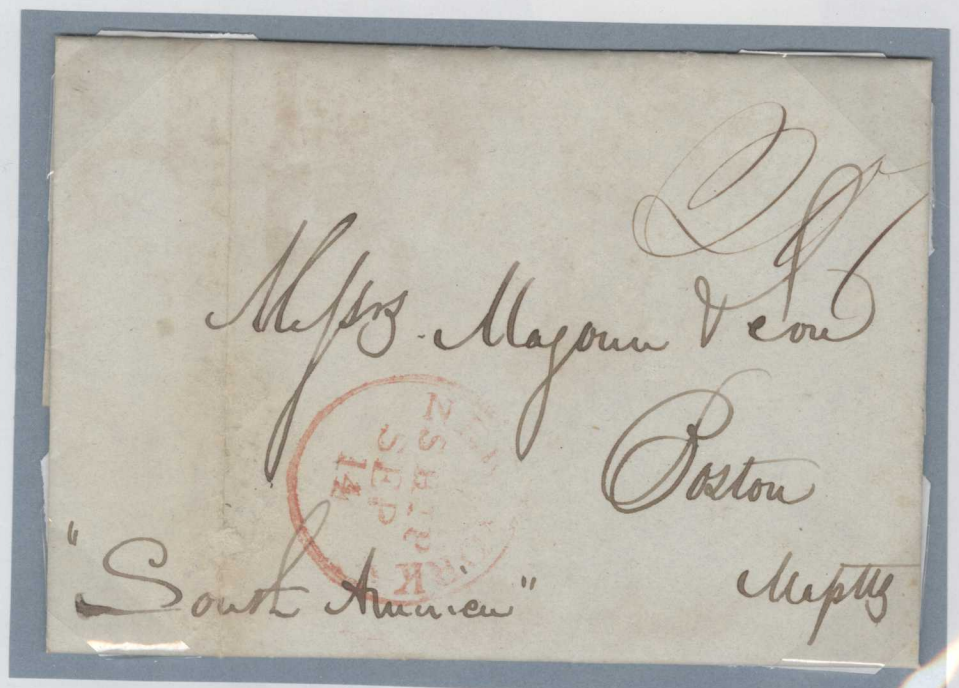 Messrs. Magoun & Son
Boston
Massts
"South America"
NEW YORK
SHIP
SEP
14